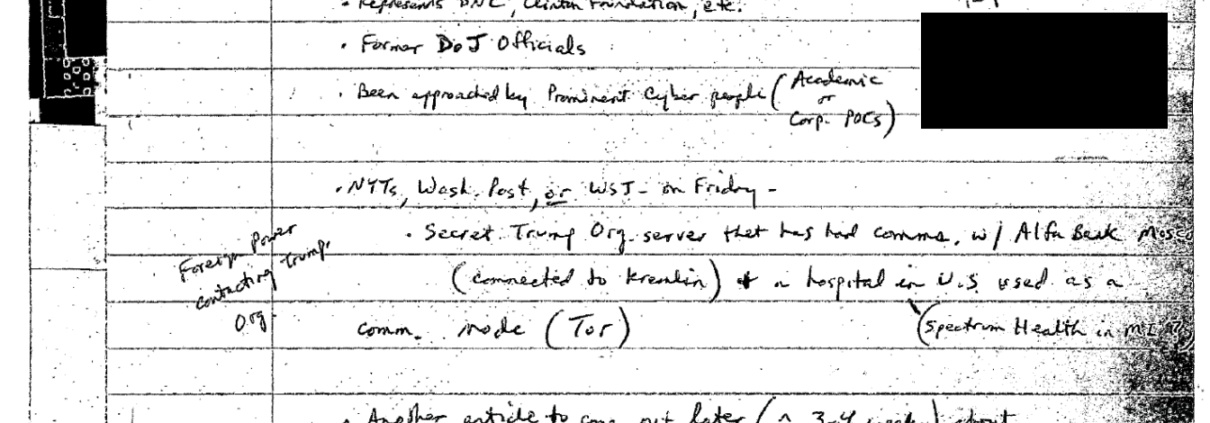 • Represents DNC, Clinton Foundation, etc.
• Former DoJ Officials
• Been approached by Prominent Cyber people (Academic
or
Corp. POCs)
• NYTs, Wash. Post, or WSJ - on Friday -
• Secret Trump Org. server that has had comms. w/ Alfa Bank Mosco
Foreign Power
contacting Trump.
Org.
(connected to Kremlin) + a hospital in U.S. used as a
comm. node (Tor)
(Spectrum Health in MI
• Another article to come out later (~ 3-4 weeks) about